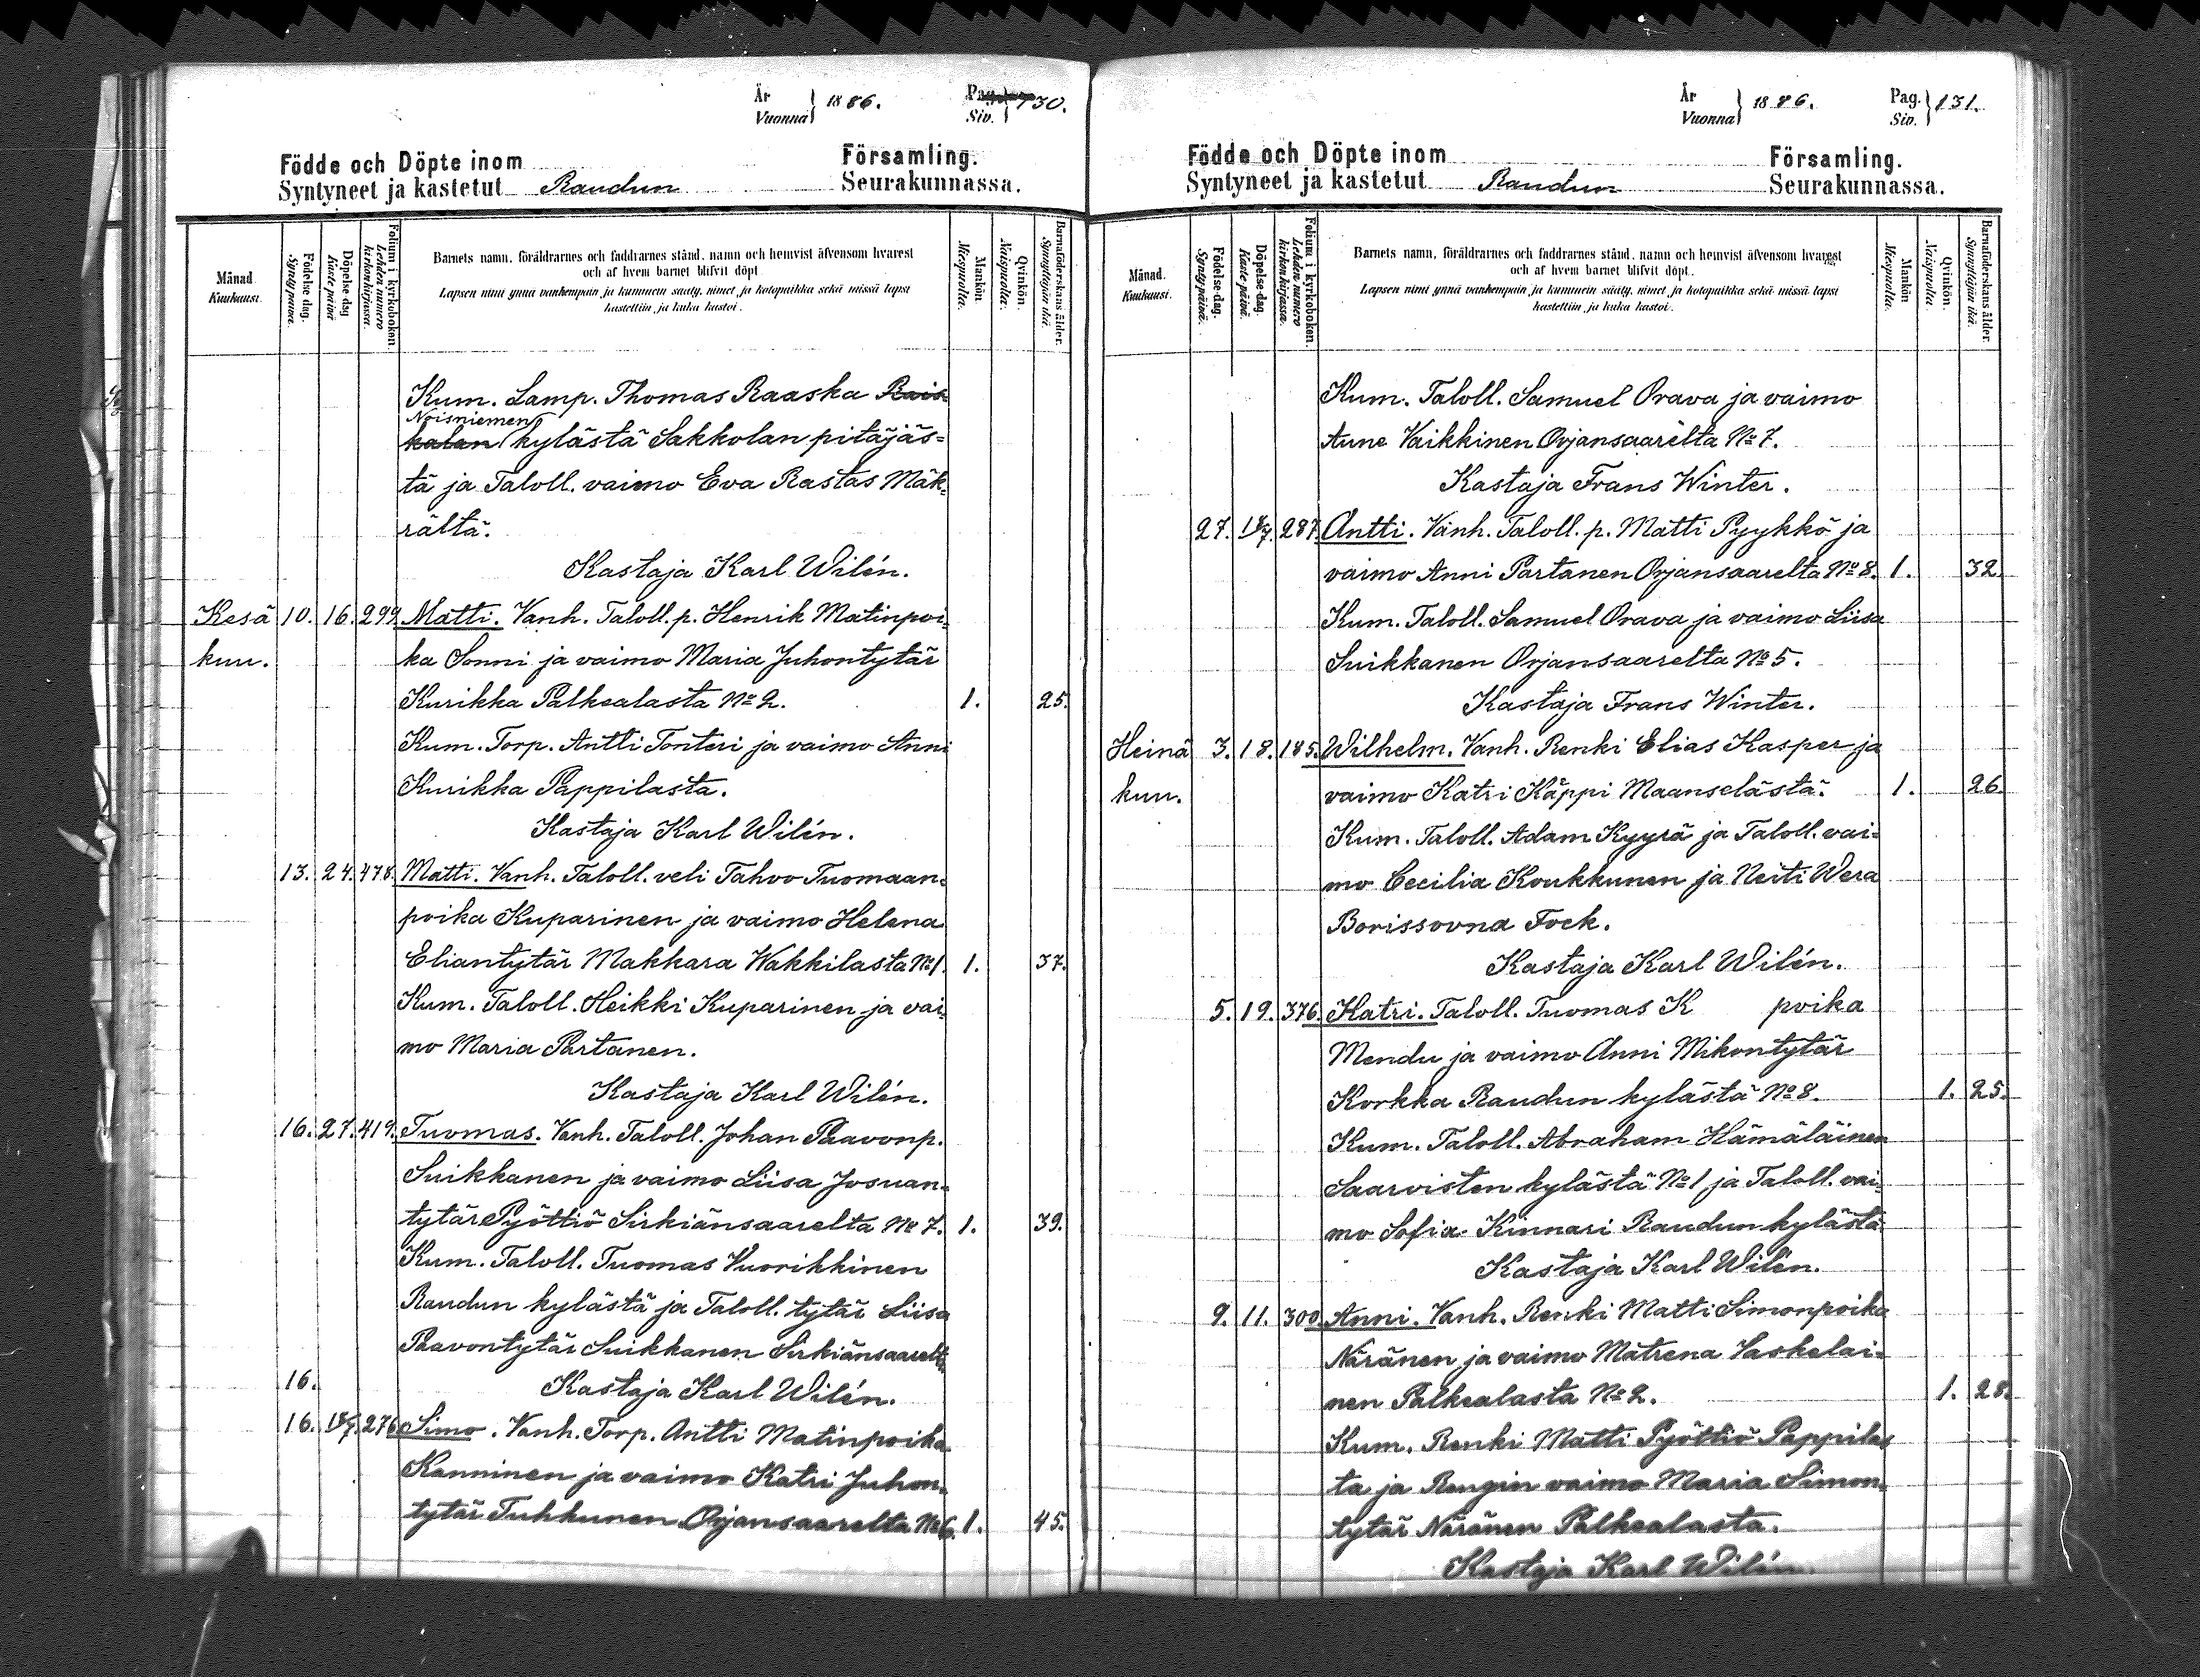 År
Vuonna } 1886.
Pag.
Siv. } 130.
Födde och Döpte inom Församling.
Syntyneet ja kastetut Raudun Seurakunnassa.
Månad. Kuukausi.
Födelse-dag. Syntypäivä.
Döpelse-dag. Kastepäivä.
Folium i kyrkoboken. Lehden numero kirkonkirjassa.
Barnets namn, föräldrarnes och faddrarnes stånd, namn och hemvist äfvensom hvarest
och af hvem barnet blifvit döpt.
Lapsen nimi ynnä vanhempain ja kummein sääty, nimet ja kotopaikka sekä missä lapsi
kastettiin ja kuka kastoi.
Mankön. Miespuolia.
Qvinkön. Naispuolia.
Barnaföderskans ålder. Synnyttäjän ikä.
Kum. Lamp. Thomas Raaska Rais
Noisniemen
kalan kylästä Sakkolan pitäjäs=
tä ja Taloll. vaimo Eva Rastas Mäk=
rältä.
Kastaja Karl Wilén.
Kesä 10. 16. 299. Matti. Vanh. Taloll. p. Henrik Matinpoi=
kuu. ka Sonni ja vaimo Maria Juhontytär
Kurikka Palkealasta No 2. 1. 25.
Kum. Torp. Antti Tonteri ja vaimo Anni
Kurikka Pappilasta.
Kastaja Karl Wilén.
13. 24. 478. Matti. Vanh. Taloll. veli Tahvo Tuomaan=
poika Kuparinen ja vaimo Helena
Eliantytär Makkara Wakkilasta No 1. 1. 37.
Kum. Taloll. Heikki Kuparinen ja vai=
mo Maria Partanen.
Kastaja Karl Wilén.
16. 27. 419. Tuomas. Vanh. Taloll. Johan Paavonp.
Suikkanen ja vaimo Liisa Josuan=
tytär Pyöttiö Sirkiänsaarelta No 7. 1. 39.
Kum. Taloll. Tuomas Vuorikkinen
Raudun kylästä ja Taloll. tytär Liisa
Paavontytär Suikkanen Sirkiänsaarelta
16. Kastaja Karl Wilén.
16. 276. Simo. Vanh. Torp. Antti Matinpoika
Kanninen ja vaimo Katri Juhon=
tytär Tuhkunen Orjansaarelta No 6. 1. 45.
År
Vuonna } 1886.
Pag.
Siv. } 131.
Födde och Döpte inom Församling.
Syntyneet ja kastetut Raudun Seurakunnassa.
Månad. Kuukausi.
Födelse-dag. Syntypäivä.
Döpelse-dag. Kastepäivä.
Folium i kyrkoboken. Lehden numero kirkonkirjassa.
Barnets namn, föräldrarnes och faddrarnes stånd, namn och hemvist äfvensom hvarest
och af hvem barnet blifvit döpt.
Lapsen nimi ynnä vanhempain ja kummein sääty, nimet ja kotopaikka sekä missä lapsi
kastettiin ja kuka kastoi.
Mankön. Miespuolia.
Qvinkön. Naispuolia.
Barnaföderskans ålder. Synnyttäjän ikä.
Kum. Taloll. Samuel Orava ja vaimo
Aune Vaikkinen Orjansaarelta No 7.
Kastaja Frans Winter.
27. 287. Antti. Vanh. Taloll. p. Matti Pyykkö ja
vaimo Anni Partanen Orjansaarelta No 8. 1. 32.
Kum. Taloll. Samuel Orava ja vaimo Liisa
Suikkanen Orjansaarelta No 5.
Kastaja Frans Winter.
Heinä 3. 18. 185. Wilhelm. Vanh. Renki Elias Kasper ja
kuu. vaimo Katri Käppi Maanselästä. 1. 26.
Kum. Taloll. Adam Kyyrä ja Taloll. vai=
mo Cecilia Koukkunen ja Neiti Wera
Borissovna Fock.
Kastaja Karl Wilén.
5. 19. 376. Katri. Taloll. Tuomas K poika
Mendu ja vaimo Anni Mikontytär
Korkka Raudun kylästä No 8. 1. 25.
Kum. Taloll. Abraham Hämäläinen
Saarvisten kylästä No 1 ja Taloll. vai=
mo Sofia Kinnari Raudun kylästä
Kastaja Karl Wilén.
9. 11. 300. Anni. Vanh. Renki Matti Simonpoika
Näränen ja vaimo Matrena Vaskelai=
nen Palkealasta No 2. 1. 28.
Kum. Renki Matti Pyöttiö Pappilas
ta ja Rengin vaimo Maria Simon=
tytär Näränen Palkealasta.
Kastaja Karl Wilén.